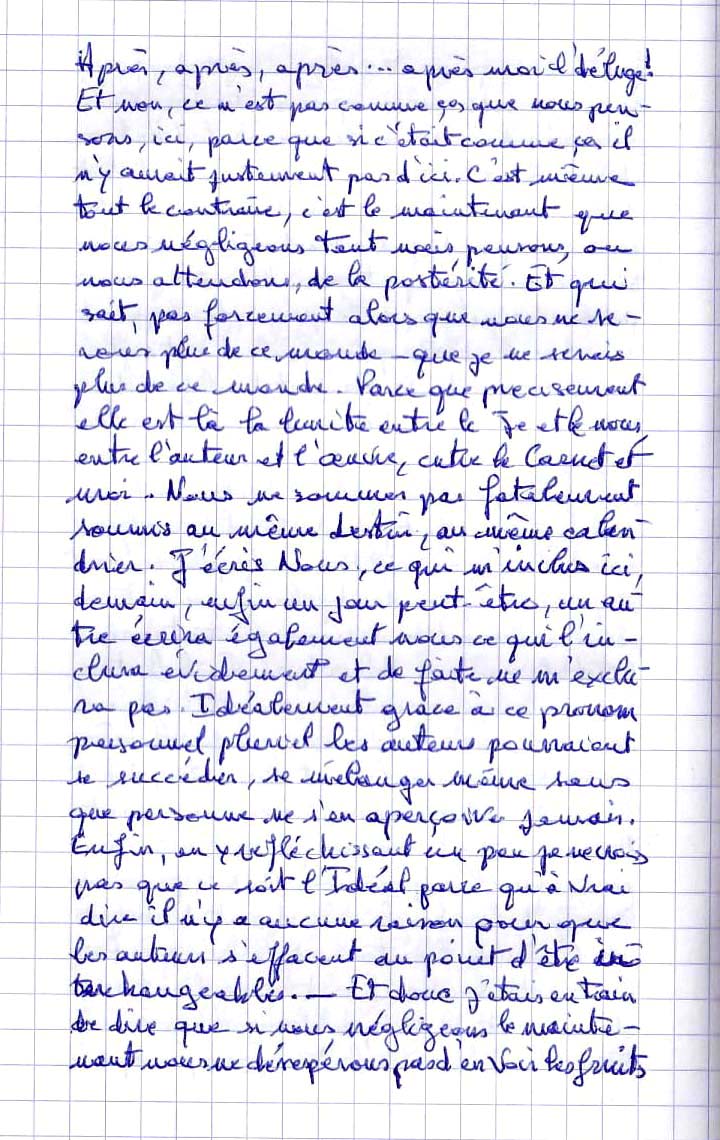 Après, après, après... après moi l'déluge!
Et non, ce n'est pas comme ça que nous pen-
sons, ici, parce que si c'était comme ça il
n'y aurait justement pas d'ici. C'est même
tout le contraire, c'est le maintenant que
nous négligeons tout mais, pensons, ou
nous attendons, de la postérité. Et qui
sait, pas forcement alors que nous ne se-
rons plus de ce monde - que je ne serais
plus de ce monde. Parce que precisement
elle est là la limite entre le Je et le nous,
entre l'auteur et l'œuvre, entre le Carnet et
moi. Nous ne sommes pas fatalement
soumis au même destin, au même calen-
drier. J'écris Nous, ce qui m'inclus ici,
demain, enfin un jour peut-être, un au-
tre écrira également nous ce qui l'in-
clura évidement et de faite ne m'exclu-
ra pas. Idéalement grâce à ce pronom
personnel pluriel les auteurs pourraient
se succéder, se mélanger même sans
que personne ne s'en aperçoive jamais.
Enfin, en y réfléchissant un peu je ne crois
pas que ce soit l'Idéal parce qu'à vrai
dire il n'y a aucune raison pour que
les auteurs s'effacent au point d'être in-
terchangeables. — Et donc j'étais en train
de dire que si nous négligeons le mainte-
nant nous ne désespérons pas d'en voir les fruits